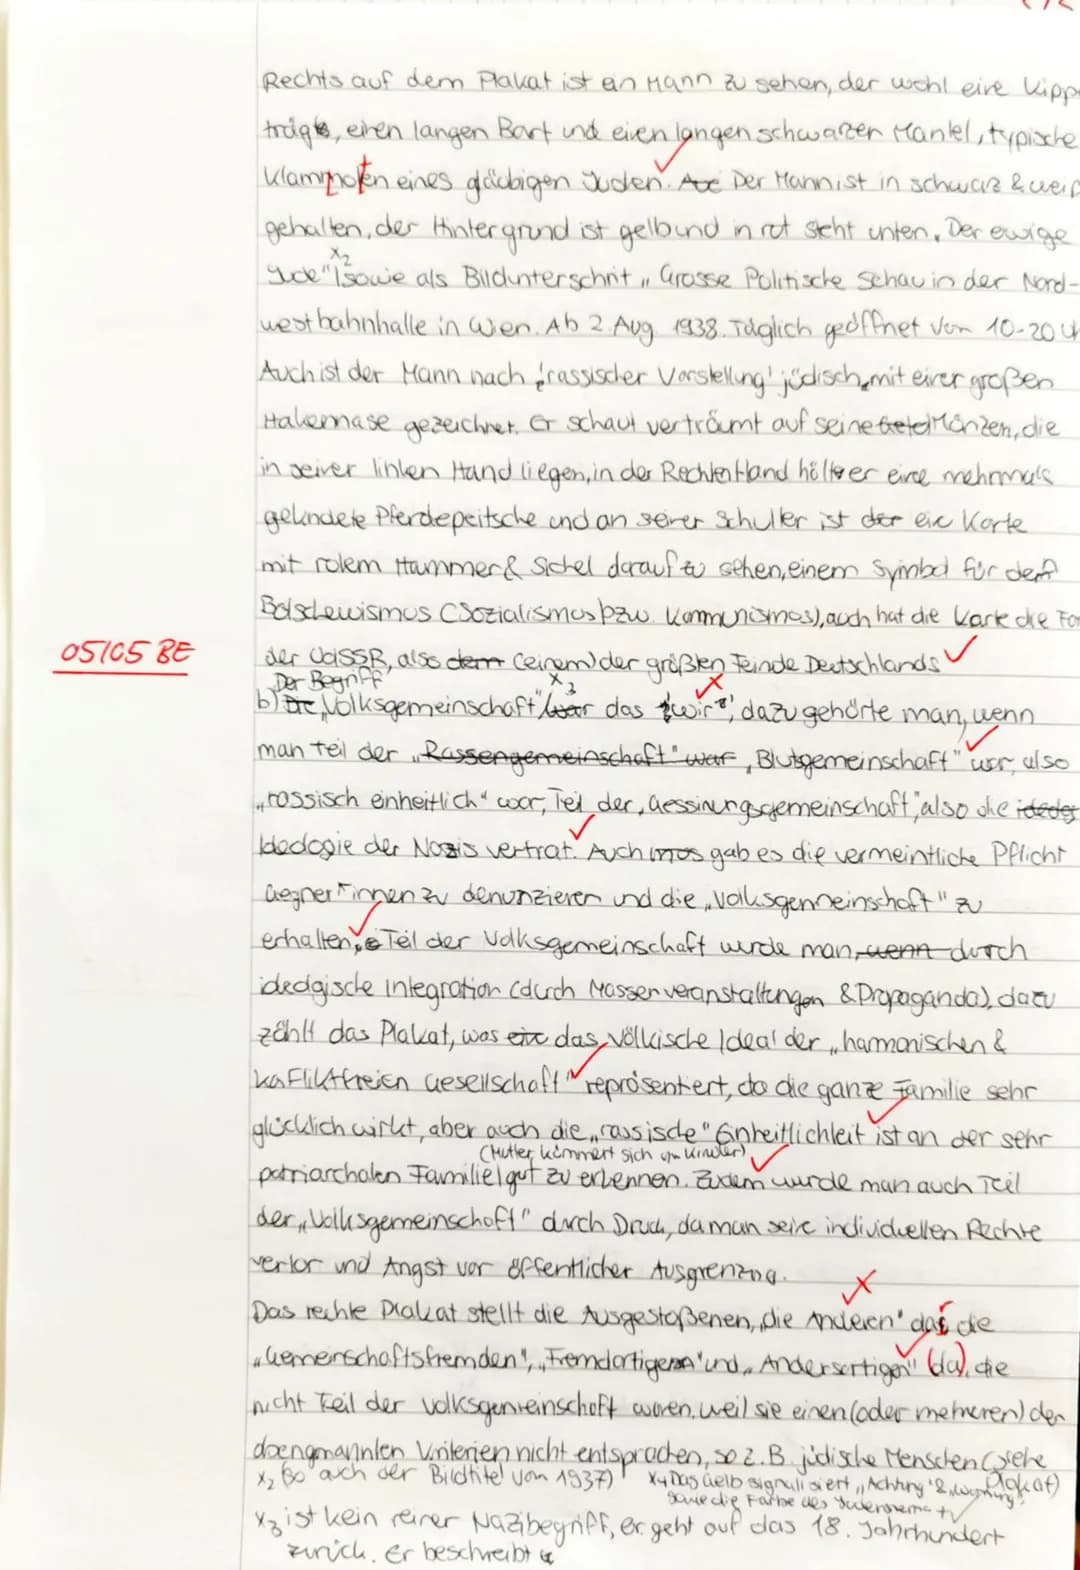 Rechts auf dem Plakat ist ein Mann zu sehen, der wohl eine Kipp
trägt, einen langen Bart und einen langen schwarzen Mantel, typische
Klammoten eines gläubigen Juden. Der Mann ist in schwarz & weiß
gehalten, der Hintergrund ist gelb und in rot steht unten „Der ewige
x2
Jude" sowie als Bildunterschrit „Grosse Politische Schau in der Nord-
westbahnhalle in Wien. Ab 2. Aug. 1938. Täglich geöffnet von 10-20 U
Auch ist der Mann nach 'rassischer Vorstellung' jüdisch, mit einer großen
Hakennase gezeichnet. Er schaut verträumt auf seine Münzen, die
in seiner linken Hand liegen, in der Rechten Hand hält er eine mehrmals
geknotete Pferdepeitsche und an seiner Schulter ist der eine Karte
mit rotem Hammer & Sichel darauf zu sehen, einem Symbol für den
Bolschewismus (Sozialismus bzw. Kommunismus), auch hat die Karte die For
05/05 BE
der UdSSR, also dem (einem) der größten Feinde Deutschlands
Der Begriff
x3
b) Die „Volksgemeinschaft" war das „wir", dazu gehörte man, wenn
man teil der „Rassengemeinschaft" war „Blutsgemeinschaft" war, also
„rassisch einheitlich" war, Teil der „Gessinungsgemeinschaft", also die
Ideologie der Nazis vertrat. Auch gab es die vermeintliche Pflicht
Gegner*innen zu denunzieren und die „Volksgemeinschaft" zu
erhalten. Teil der Volksgemeinschaft wurde man, wenn durch
ideologische Integration (durch Massenveranstaltungen & Propaganda), dazu
zählt das Plakat, was das völkische Ideal der „harmonischen &
konfliktfreien Gesellschaft" repräsentiert, da die ganze Familie sehr
glücklich wirkt, aber auch die „rassische" Einheitlichkeit ist an der sehr
(Mutter kümmert sich um Kinder)
patriarchalen Familie gut zu erkennen. Zudem wurde man auch Teil
der „Volksgemeinschaft" durch Druck, da man seine individuellen Rechte
verlor und Angst vor öffentlicher Ausgrenzung.
Das rechte Plakat stellt die Ausgestoßenen, „die Anderen" das die
„Gemeinschaftsfremden", „Fremdartigen" und „Andersartigen" (da), die
nicht Teil der Volksgemeinschaft waren, weil sie einen (oder mehreren) der
obengenannten Kriterien nicht entsprachen, so z.B. jüdische Menschen (siehe
Plakat)
x2 (so auch der Bildtitel von 1937)
x4 Das Gelb signalisiert „Achtung" & „Warnung"
sowie die Farbe des Judensterns
x3 ist kein reiner Nazibegriff, er geht auf das 18. Jahrhundert
zurück. Er beschreibt